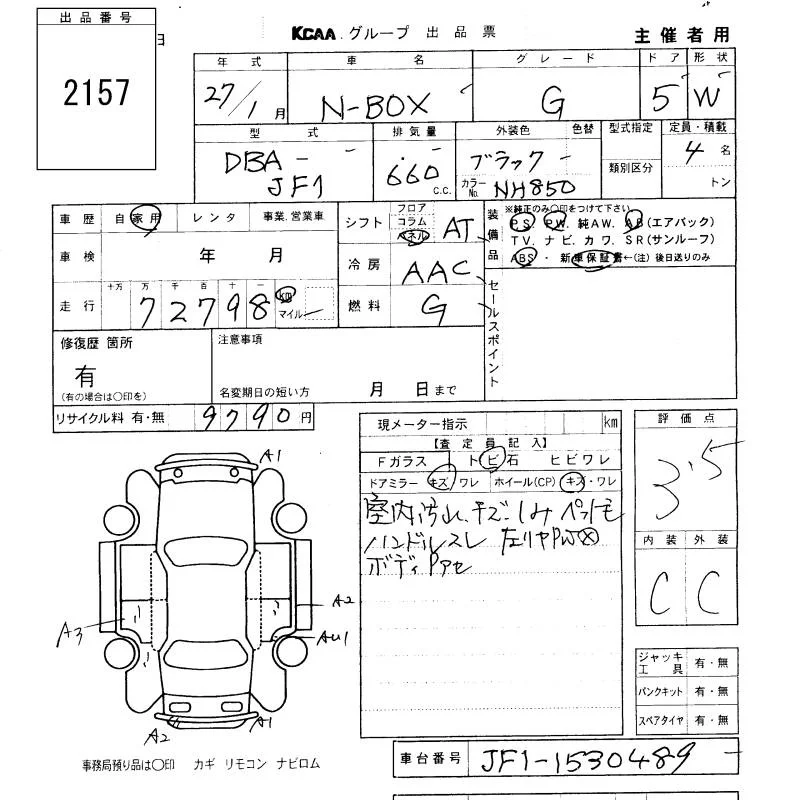 出品番号
2157
日
KCAA グループ 出品票
主催者用
年式 車名 グレード ドア 形状
27/1月 N-BOX G 5 W
型式 排気量 外装色 色替 型式指定 定員・積載
DBA-JF1 660 C.C. ブラック カラーNo. NH850 類別区分 4名 トン
車歴 自家用 レンタ 事業.営業車
車検 年 月
走行 十万 万 千 百 十 一
72798 km マイル
シフト フロア コラム パネル AT
冷房 AAC
燃料 G
装備品
※純正のみ○印をつけて下さい
PS, PW, 純AW, AB(エアバック)
TV, ナビ, カワ, SR(サンルーフ)
ABS・新車保証書←(注)後日送りのみ
セールスポイント
修復歴 箇所
有
(有の場合は○印を)
注意事項
名変期日の短い方 月 日まで
リサイクル料 有・無 9790円
現メーター指示 km
【査定員記入】
Fガラス ト ビ 石 ヒビワレ
ドアミラー キズ/ワレ ホイール(CP) キズ・ワレ
室内汚れ、キズ、しみ ペット毛
ハンドルスレ 左リヤPW
ボディPアセ
評価点
3.5
内装 外装
C C
A1
A2
A3
AU1
A2
A1
ジャッキ工具 有・無
パンクキット 有・無
スペアタイヤ 有・無
事務局預り品は○印 カギ リモコン ナビロム
車台番号 JF1-1530489